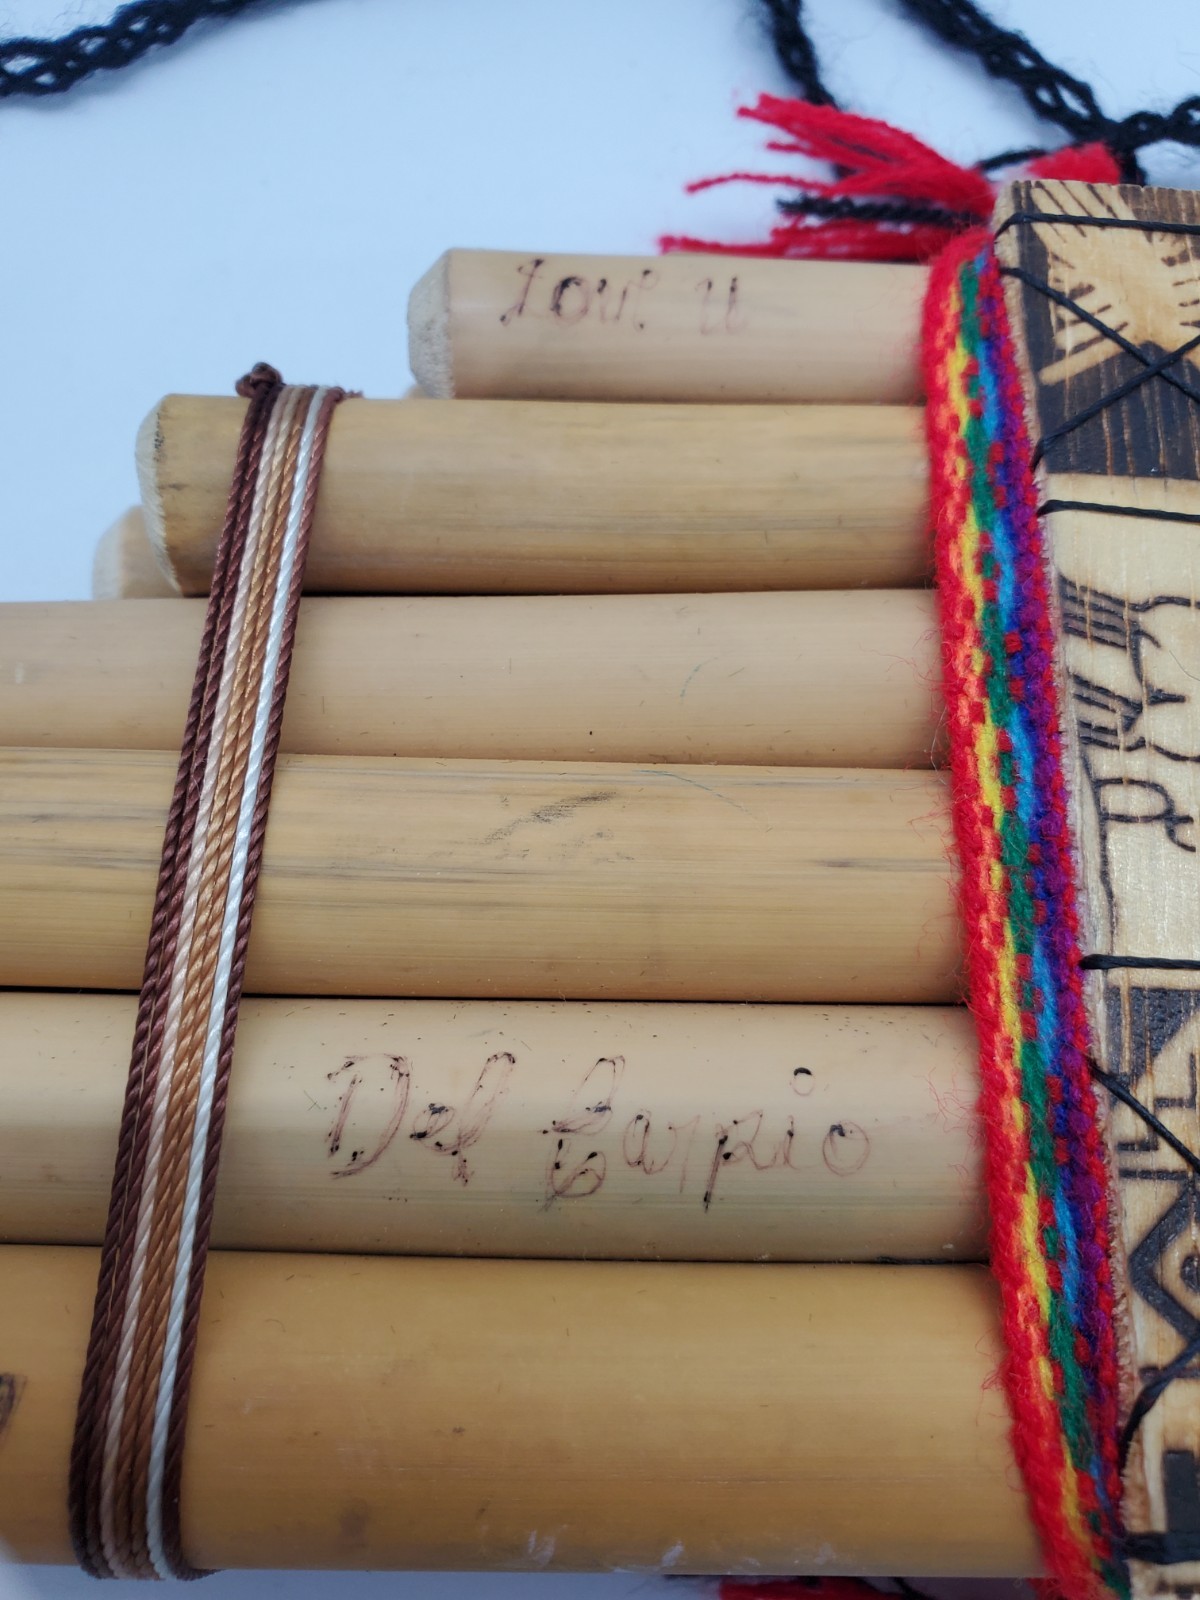 Love u
Del Carpio